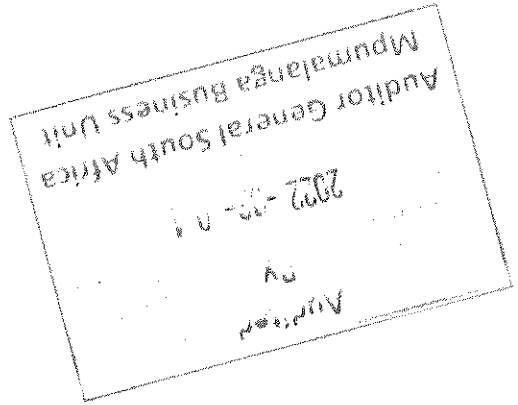 Audited
By
2022
Auditor General South Africa
Mpumalanga Business Unit